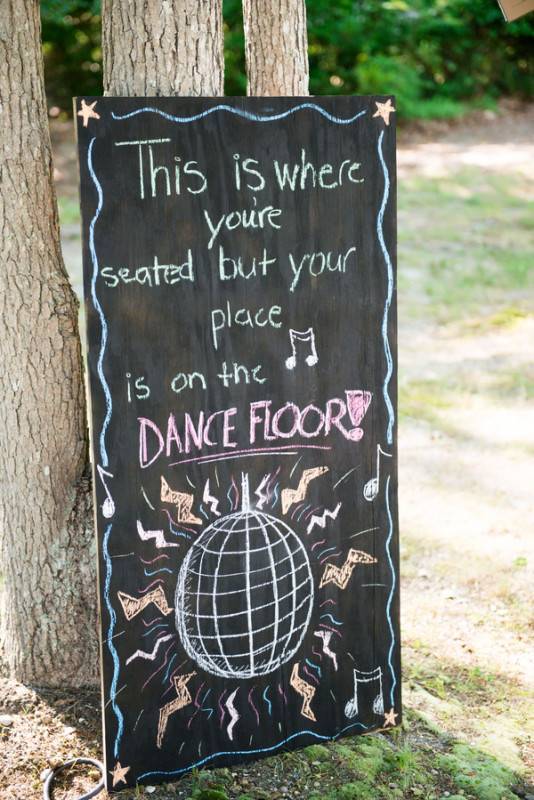 This is where
you're
seated but your
place
is on the
DANCE FLOOR!